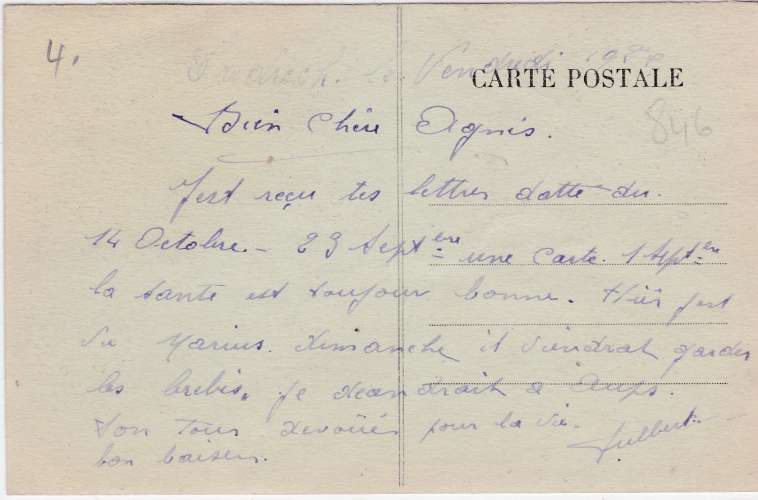 4.
le Vendredi
CARTE POSTALE
846
Bien Chère Agnès.
J'est reçu tes lettres datté du.
14 Octobre - 29 Septere une Carte. 1 Septere
la sante est toujour bonne. Hiêr j'est
vu Marius. dimanche il viendrat garder
les brebis. je decendrait a Aups.
ton tous devoués pour la vie.
bon baisers.
Fulbert